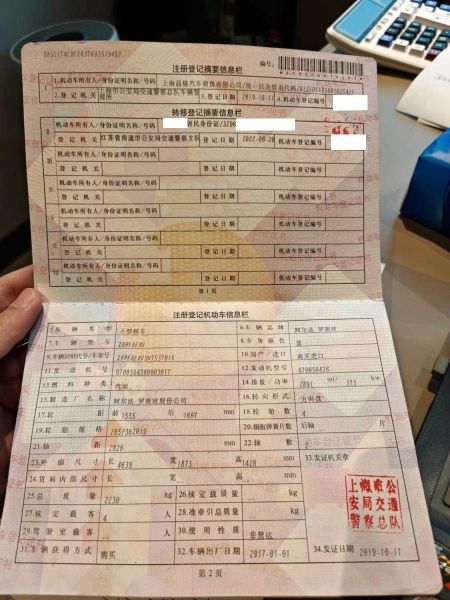 注册登记摘要信息栏
编号:
1.机动车所有人/身份证明名称/号码
2.登记机关 上海市公安局交通警察总队车辆管理所 3.登记日期 2019-10-11 4.机动车登记编号
转移登记摘要信息栏
Ⅱ 机动车所有人/身份证明名称/号码 居民身份证/3206
登记机关 江苏省南通市公安局交通警察支队 登记日期 机动车登记编号
机动车所有人/身份证明名称/号码
登记机关 登记日期 机动车登记编号
机动车所有人/身份证明名称/号码
登记机关 登记日期 机动车登记编号
机动车所有人/身份证明名称/号码
登记机关 登记日期 机动车登记编号
机动车所有人/身份证明名称/号码
登记机关 登记日期 机动车登记编号
第1页
注册登记机动车信息栏
5.车辆类型 小型轿车 6.车辆品牌 阿尔法.罗密欧
7.车辆型号 ZARFAEAV 8.车身颜色 蓝
9.车辆识别代号/车架号 10.国产/进口 海关进口
11.发动机号 12.发动机型号 670050436
13.燃料种类 汽油 14.排量/功率 2891 ml/ 375 kw
15.制造厂名称 阿尔法.罗密欧股份公司 16.转向形式 方向盘
17.轮距 前 1555 后 1607 mm 18.轮胎数 4
19.轮胎规格 285/30ZR19 20.钢板弹簧片数 后轴 片
21.轴距 2820 mm 22.轴数 2
23.外廓尺寸 长 4639 宽 1873 高 1426 mm 33.发证机关章
24.货厢内部尺寸 长 宽 高 mm
25.总质量 2230 kg 26.核定载质量 kg
27.核定载客 4 人 28.准牵引总质量 kg
29.驾驶室载客 人 30.使用性质 非营运
31.车辆获得方式 购买 32.车辆出厂日期 2017-01-01 34.发证日期 2019-10-11
上海市公
安局交通
警察总队
第2页